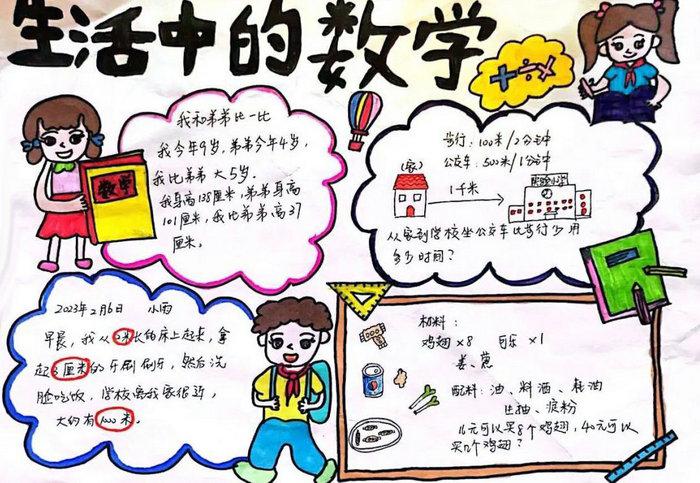 生活中的数学
我和弟弟比一比
我今年9岁,弟弟今年4岁,
我比弟弟大5岁。
我身高138厘米,弟弟身高
101厘米,我比弟弟高37
厘米。
数学
步行:100米/2分钟
公交车:500米/1分钟
(家)
1千米
实验小学
从家到学校坐公交车比步行少用
多少时间?
2023年2月6日 小雨
早晨,我从2米长的床上起来,拿
起13厘米的牙刷刷牙,然后洗
脸吃饭,学校离我家很近,
大约有1000米。
材料:
鸡翅×8 可乐×1
姜、葱
配料:油、料酒、耗油
生抽、淀粉
16元可以买8个鸡翅,40元可以
买几个鸡翅?